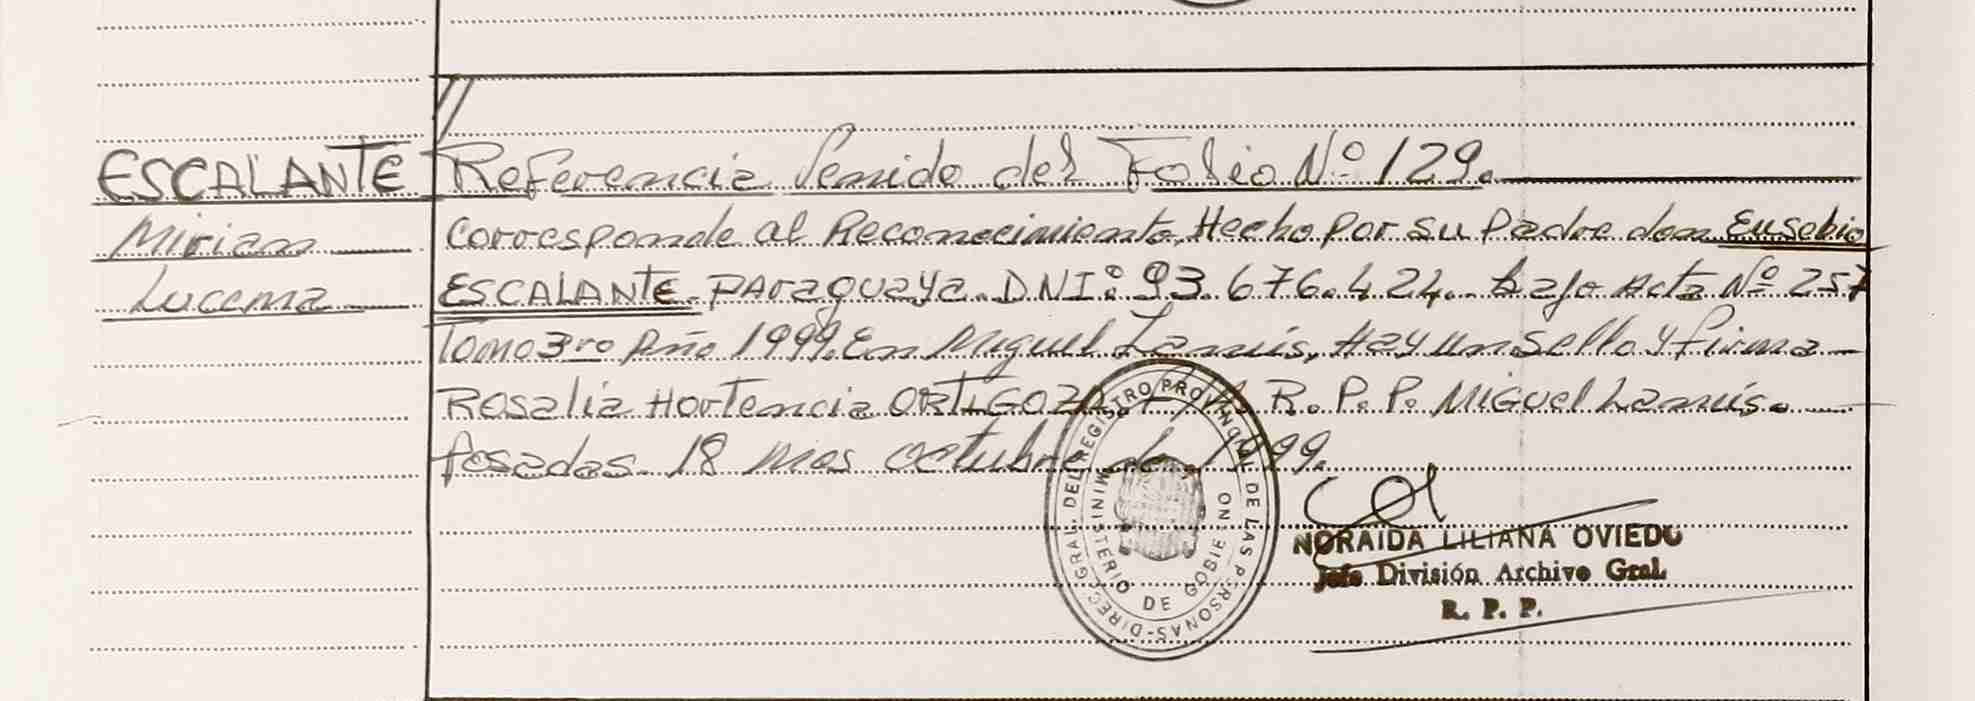 //
ESCALANTE
Miriam
Lucema
Referencia Venido del Folio Nº 129.
Corresponde al Reconocimiento, Hecho por su padre don Eusebio
ESCALANTE. paraguaya. DNI: 93.676.424. bajo Acta Nº 257
Tomo 3ro Año 1999. En Miguel Lanús, Hay un sello y firma
Rosalia Hortencia ORTIGOZA. R. P. P. Miguel Lanús.
Posadas. 18 mes octubre de 1999.
DIREC. GRAL. DEL REGISTRO PROVINCIAL DE LAS PERSONAS-
MINISTERIO DE GOBIERNO
NORAIDA LILIANA OVIEDO
Jefe División Archivo Gral.
R. P. P.